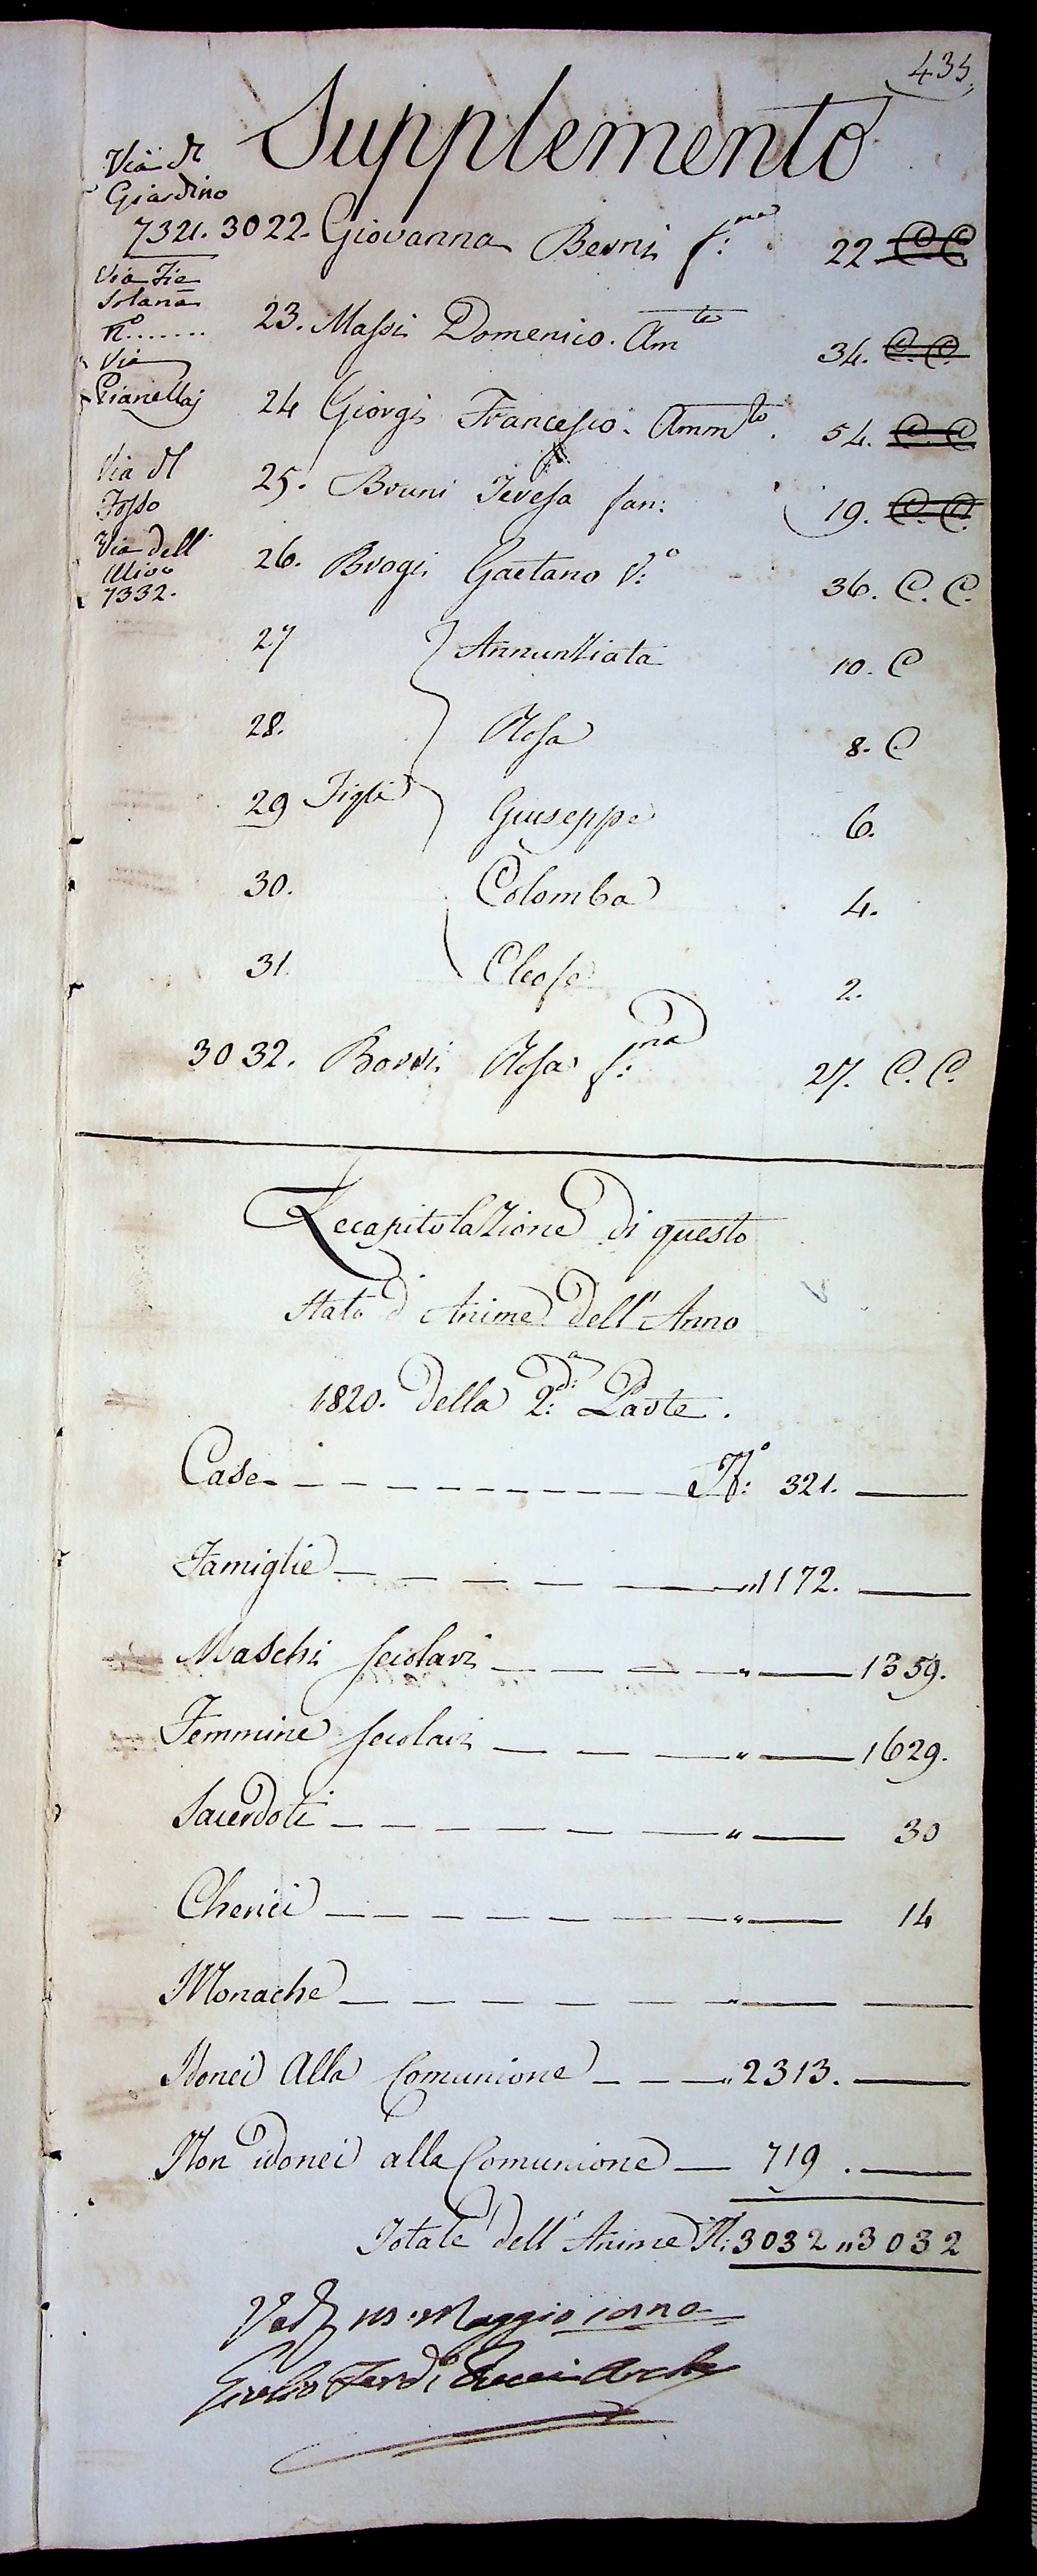 435.
Supplemento
Via dl
Giardino
7321. 3022. Giovanna Berni f:na 22 C C
Via Fie
solana
N°.......
23. Massi Domenico. Amto 34. C. C.
Via
Pianellaj
24 Giorgi Francesco. Ammto. 54. C. C
Via dl
Fosso
25. Bruni Teresa fan: 19. C. C.
Via dell'
Ulivo
7332.
26. Brogi Gaetano V:° 36. C. C.
27 Annunziata 10. C
28. Rosa 8. C
29 Figli Giuseppe 6.
30. Colomba 4.
31. Cleofe 2.
3032. Borri Rosa f:na 27. C. C.
Recapitolazione di questo
Stato d'Anime dell'Anno
1820. della 2:da Parte.
Case N:° 321.
Famiglie " 1172.
Maschi secolari " 1359.
Femmine secolari " 1629.
Sacerdoti " 30
Cherici " 14
Monache "
Idonei alla Comunione " 2313.
Non idonei alla Comunione 719.
Totale dell'Anime N: 3032 " 3032
Maggio